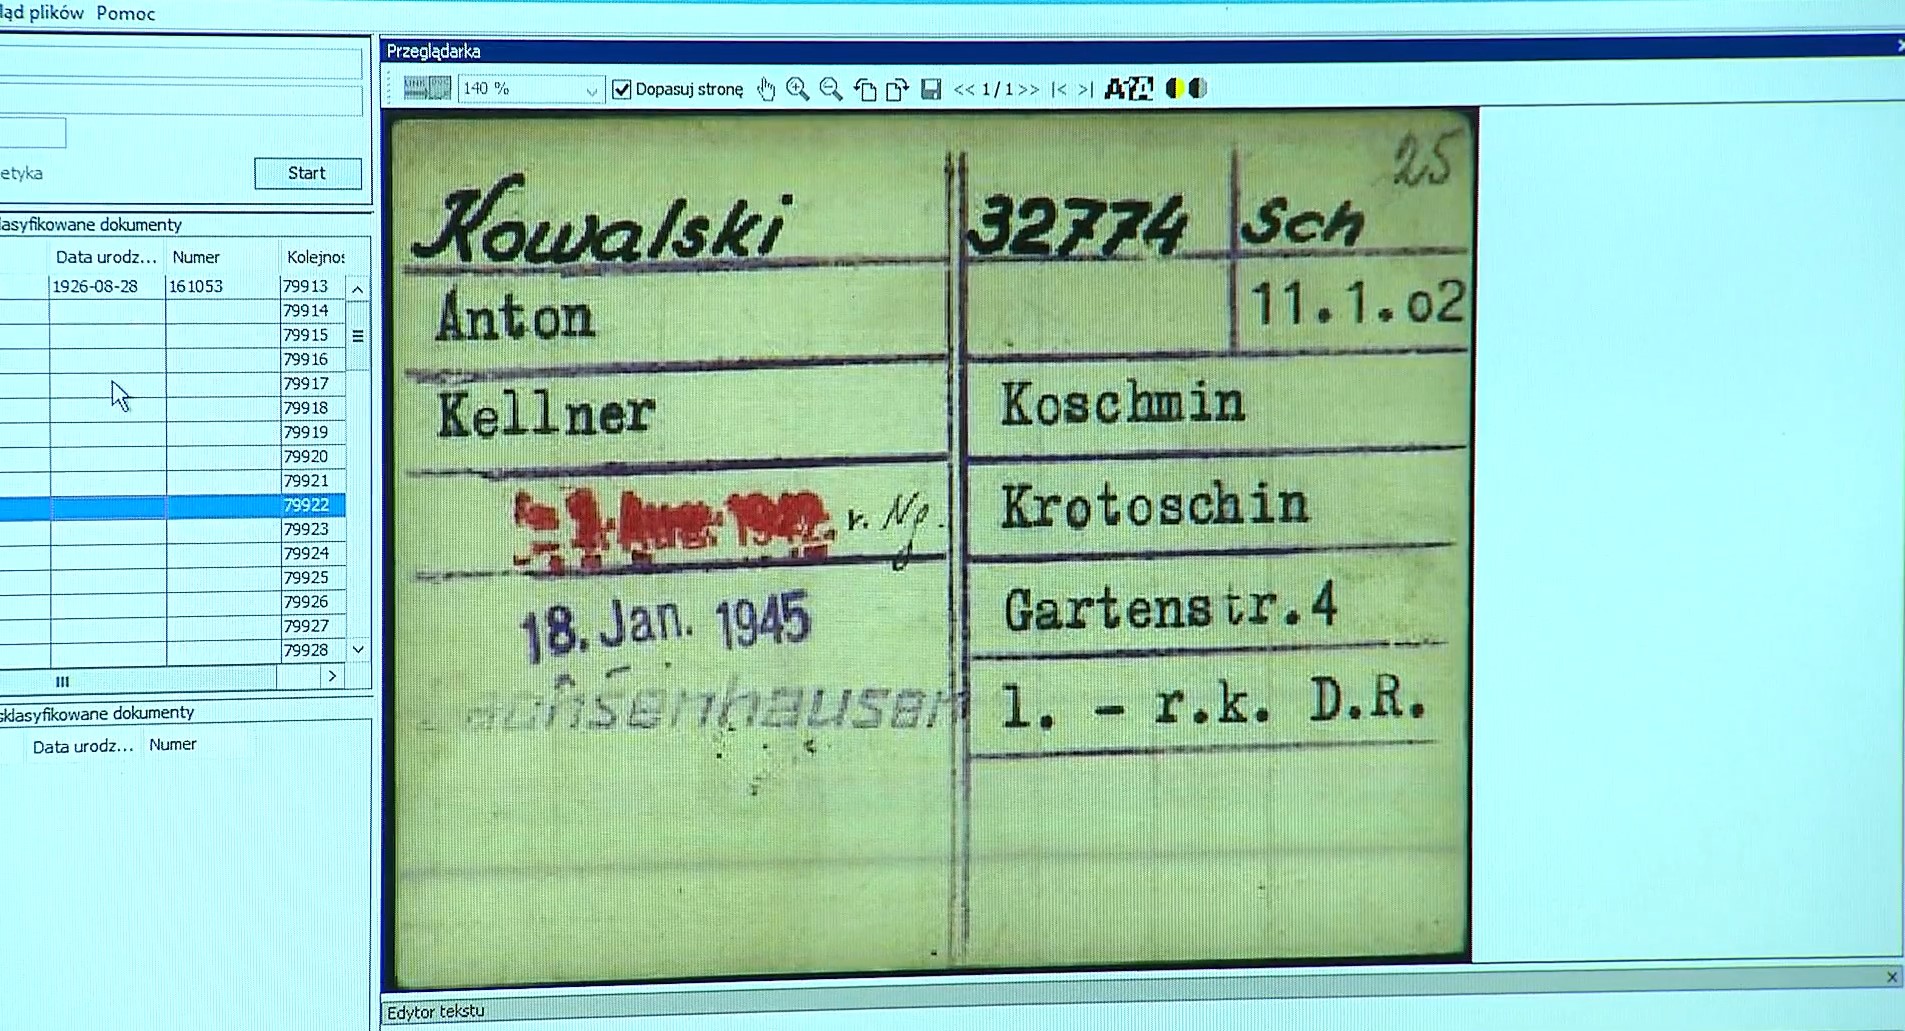 ląd plików Pomoc
Przeglądarka
140 %
Dopasuj stronę
<< 1 / 1 >> |< >|
etyka
Start
lasyfikowane dokumenty
Data urodz... Numer Kolejnoś
1926-08-28 161053 79913
79914
79915
79916
79917
79918
79919
79920
79921
79922
79923
79924
79925
79926
79927
79928
sklasyfikowane dokumenty
Data urodz... Numer
25
Kowalski 32774 Sch
Anton 11.1.o2
Kellner Koschmin
r. Ng. Krotoschin
18. Jan. 1945 Gartenstr.4
achsenhausen l. - r.k. D.R.
Edytor tekstu